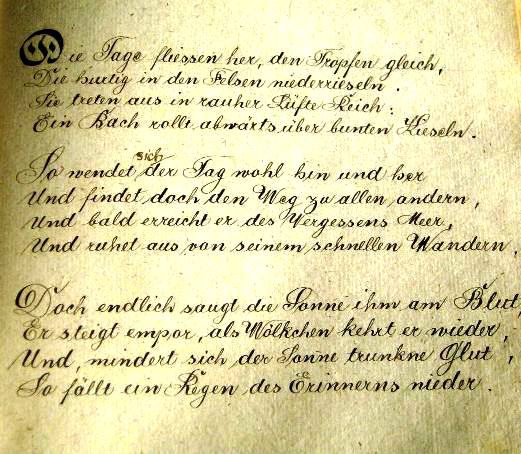 Die Tage fliessen her, den Tropfen gleich,
Die hurtig in den Felsen niederrieseln.
Sie treten aus in rauher Lüfte Reich:
Ein Bach rollt abwärts über bunten Kieseln.
So wendet sich der Tag wohl hin und her
Und findet doch den Weg zu allen andern,
Und bald erreicht er des Vergessens Meer,
Und ruhet aus von seinem schnellen Wandern.
Doch endlich saugt die Sonne ihm am Blut,
Er steigt empor, als Wölkchen kehrt er wieder,
Und, mindert sich der Sonne trunkne Glut,
So fällt ein Regen des Erinnerns nieder.